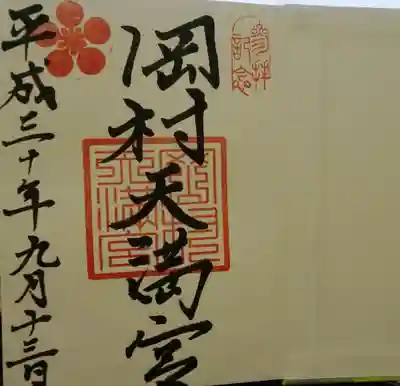 参拝
記念
岡村天満宮
平成三十年九月十三日